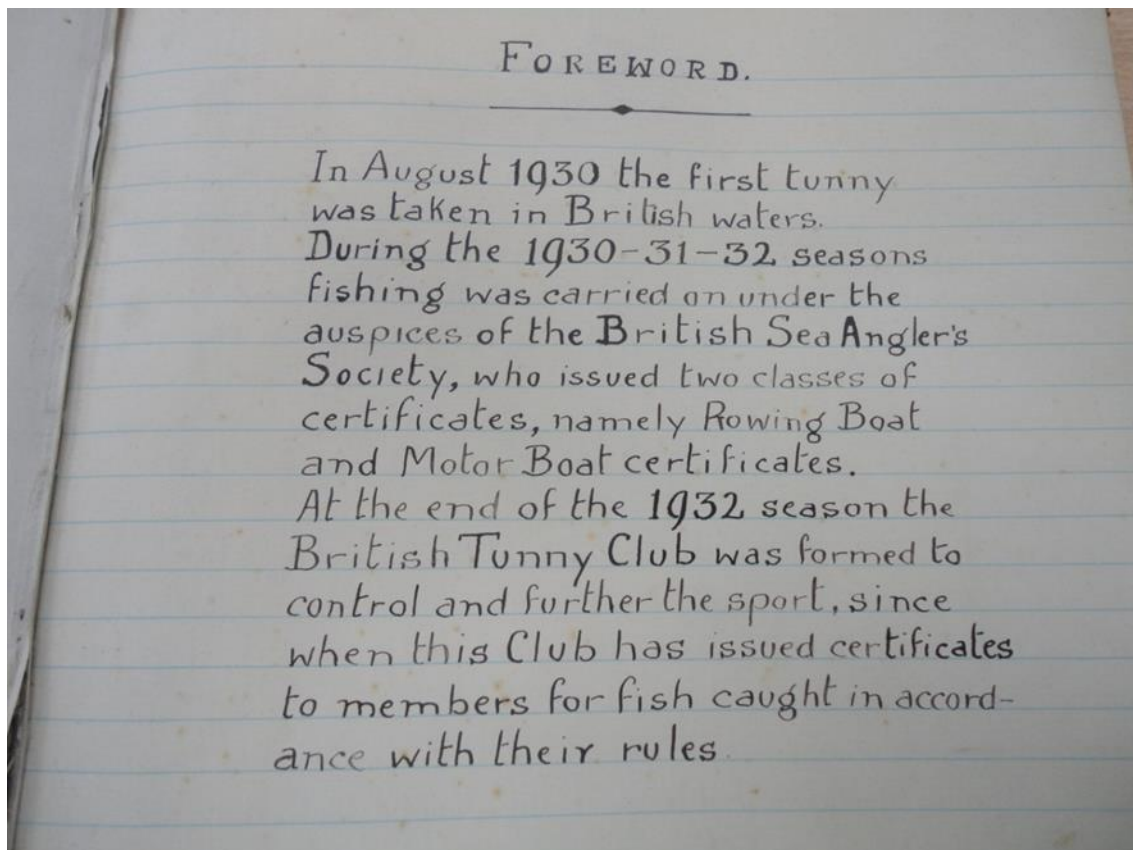 FOREWORD.
In August 1930 the first tunny
was taken in British waters.
During the 1930-31-32 seasons
fishing was carried on under the
auspices of the British Sea Angler's
Society, who issued two classes of
certificates, namely Rowing Boat
and Motor Boat certificates.
At the end of the 1932 season the
British Tunny Club was formed to
control and further the sport, since
when this Club has issued certificates
to members for fish caught in accord-
ance with their rules.